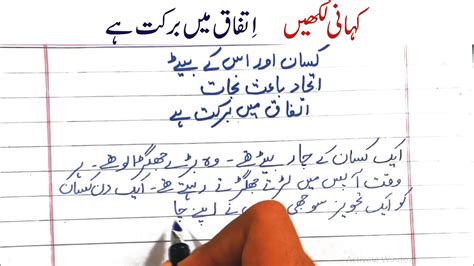 کہانی لکھیں اِتفاق میں برکت ہے
کسان اور اس کے بیٹے
اتحاد باعث نجات
اتفاق میں برکت ہے
ایک کسان کے چار بیٹے تھے۔ وہ بڑے جھگڑالو تھے۔ ہر
وقت آپس میں لڑتے جھگڑتے رہتے تھے۔ ایک دن کسان
کو ایک تجویز سوجھی نے اپنے چا